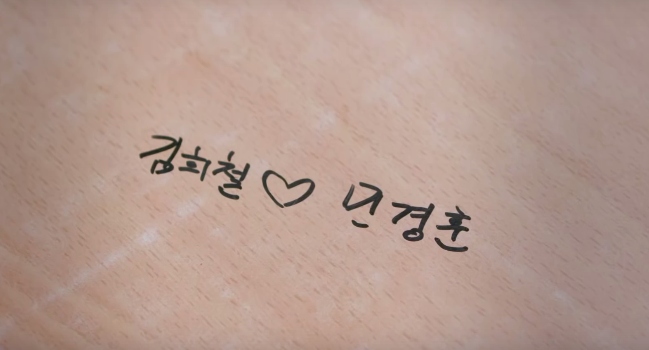 김희철♡민경훈